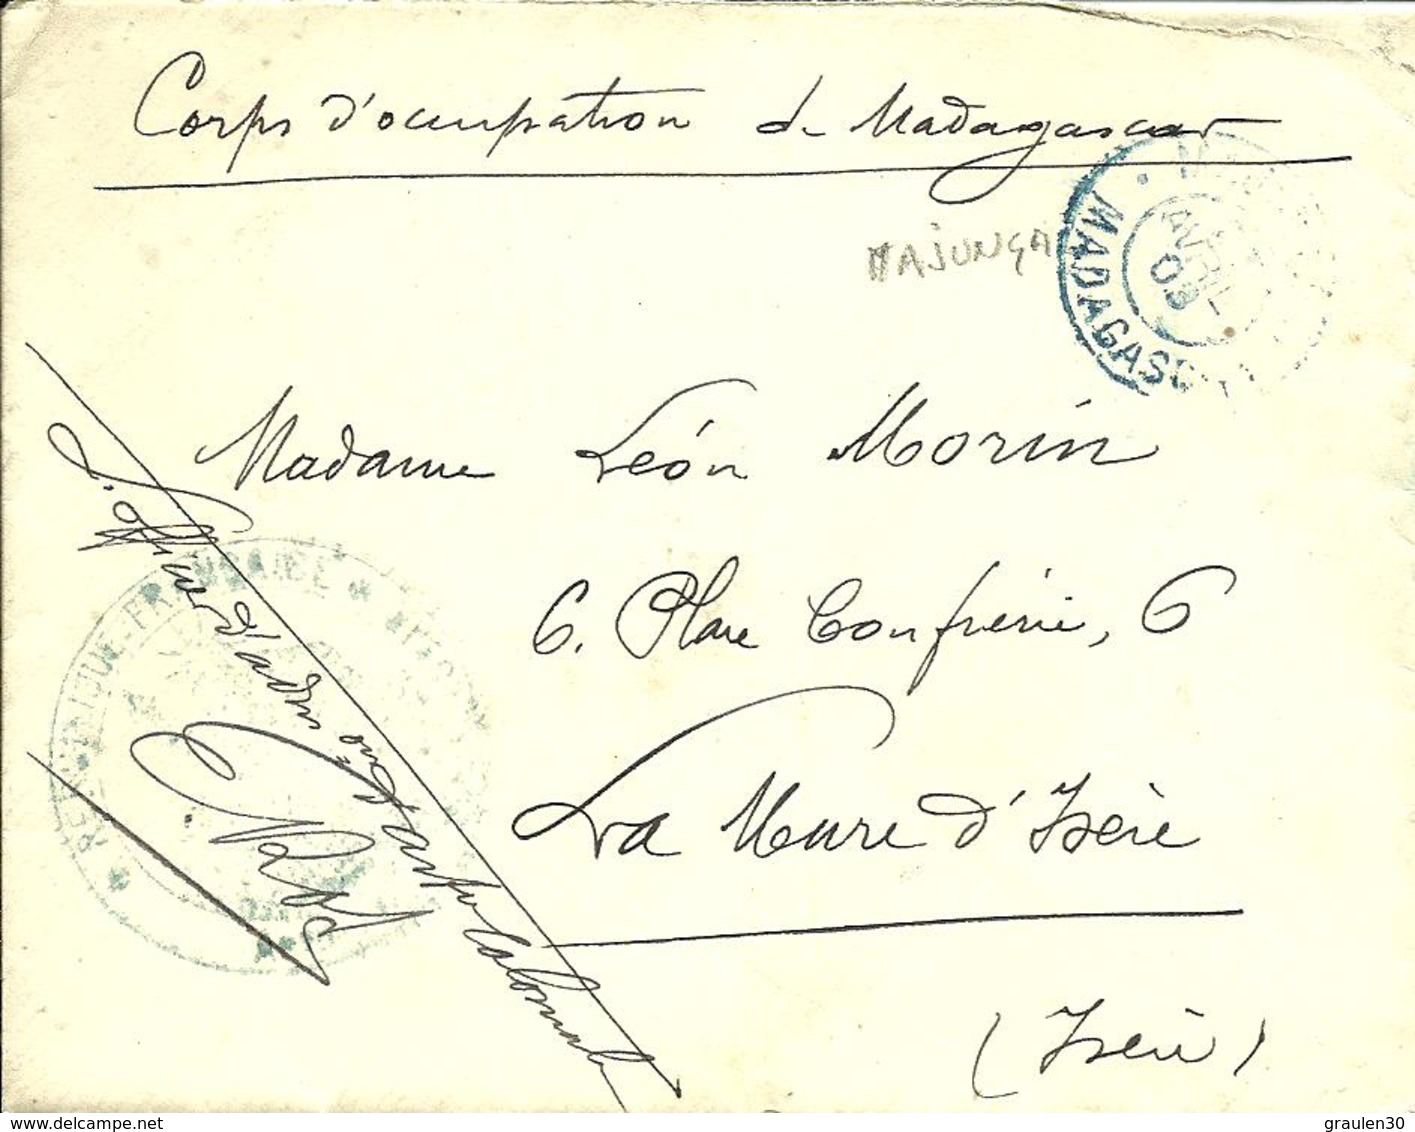 Corps d'occupation de Madagascar
MAJUNGA
MADAGASC
AVRIL
03
Madame Léon Morin
6. Place Confrérie, 6
La Mure d'Isère
(Isère)
L'officier d'adm
Artie Coloniale
FRANCAISE
www.delcampe.net
graulen30